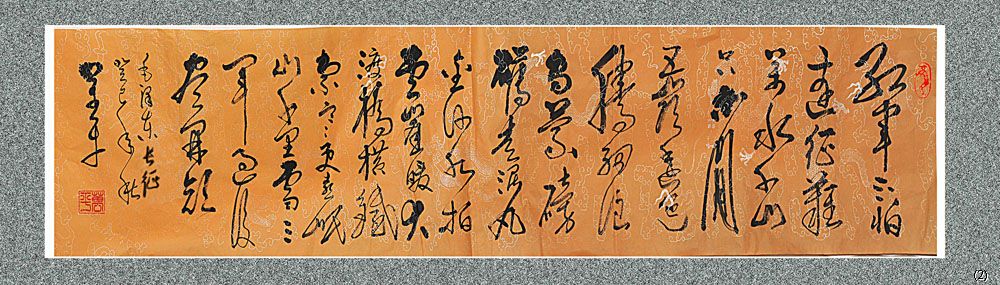 红军不怕
远征难
万水千山
只等闲
五岭逶迤
腾细浪
乌蒙磅
礴走泥丸
金沙水拍
云崖暖大
渡桥横铁
索寒更喜岷
山千里雪三
军过后
尽开颜
毛泽东长征
癸巳年秋
(2)